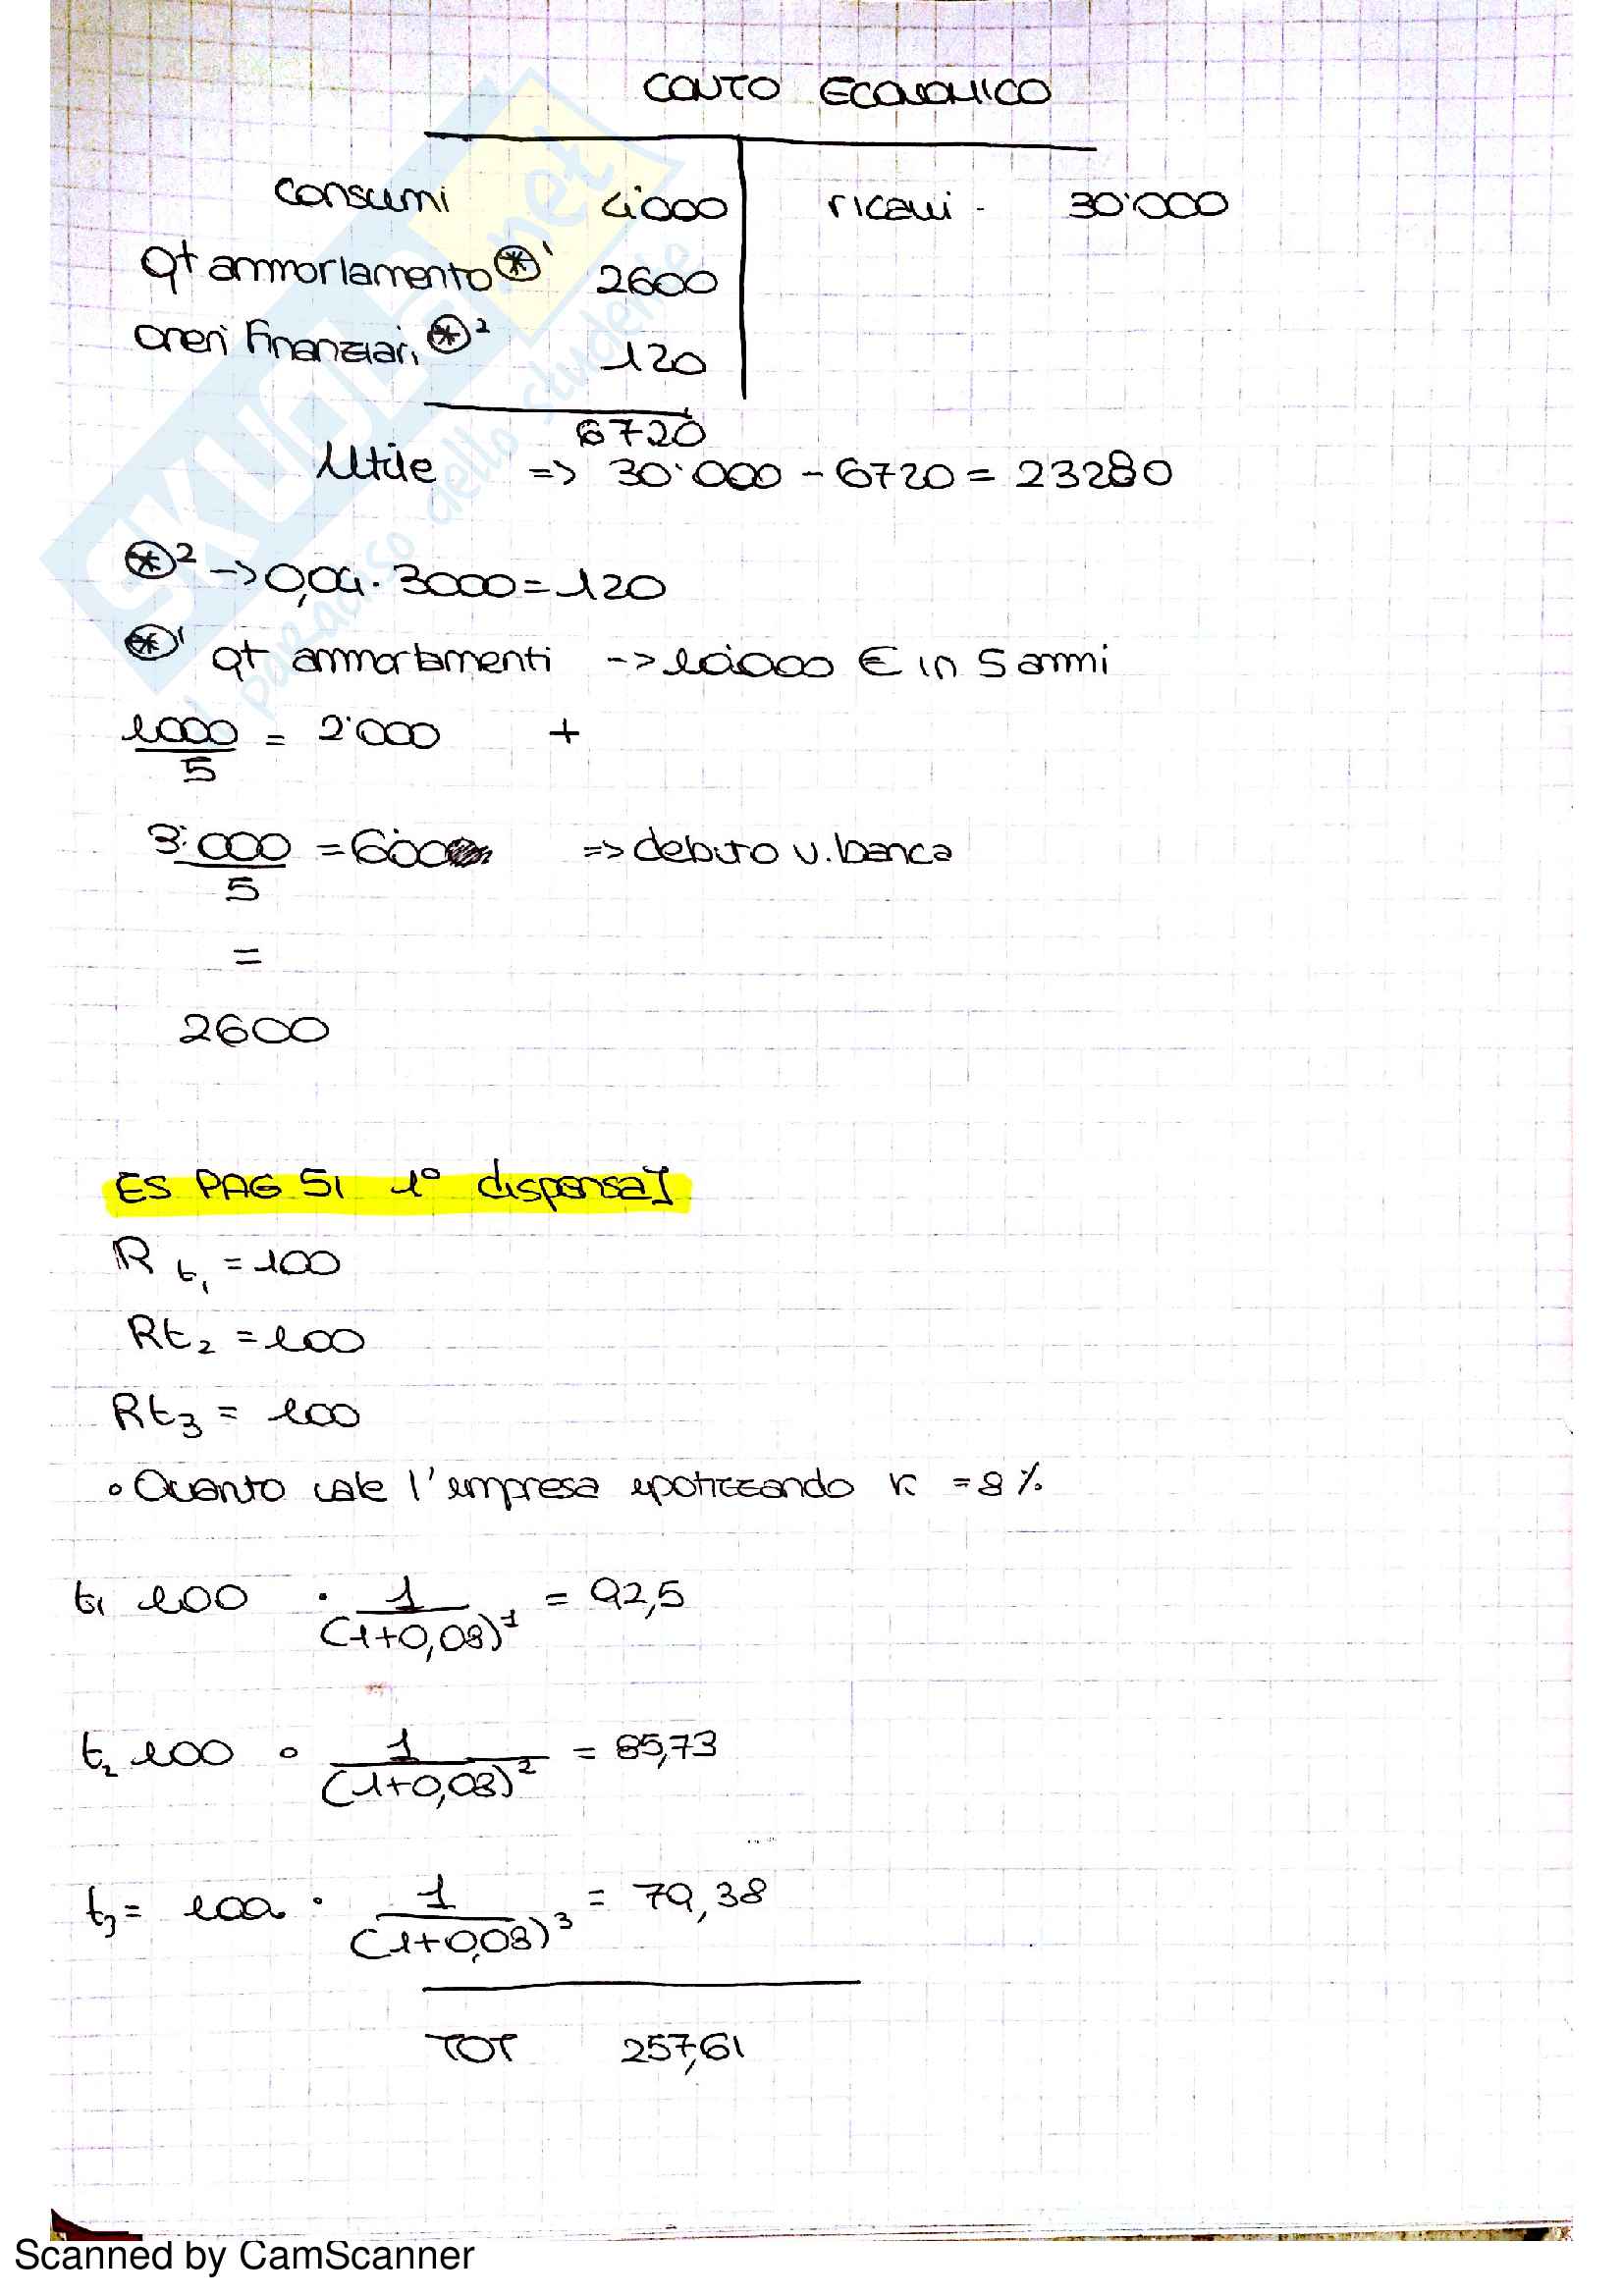 CONTO ECONOMICO
consumi 4'000 ricavi - 30'000
qt ammortamento ⊛1 2600
oneri finanziari ⊛2 120
6720
Utile => 30'000 - 6720 = 23280
⊛2 -> 0,04 · 3000 = 120
⊛1 qt ammortamenti -> 10'000 € in 5 anni
1000/5 = 2'000 +
3'000/5 = 600 => debito v. banca
=
2600
ES PAG 51 1° dispensa]
R t1 = 100
Rt2 = 100
Rt3 = 100
• Quanto vale l'impresa ipotizzando k = 8%
t1 100 · 1/(1+0,08)^1 = 92,5
t2 100 · 1/(1+0,08)^2 = 85,73
t3 = 100 · 1/(1+0,08)^3 = 79,38
TOT 257,61
SKUOLA.net
il paradiso dello studente
Scanned by CamScanner